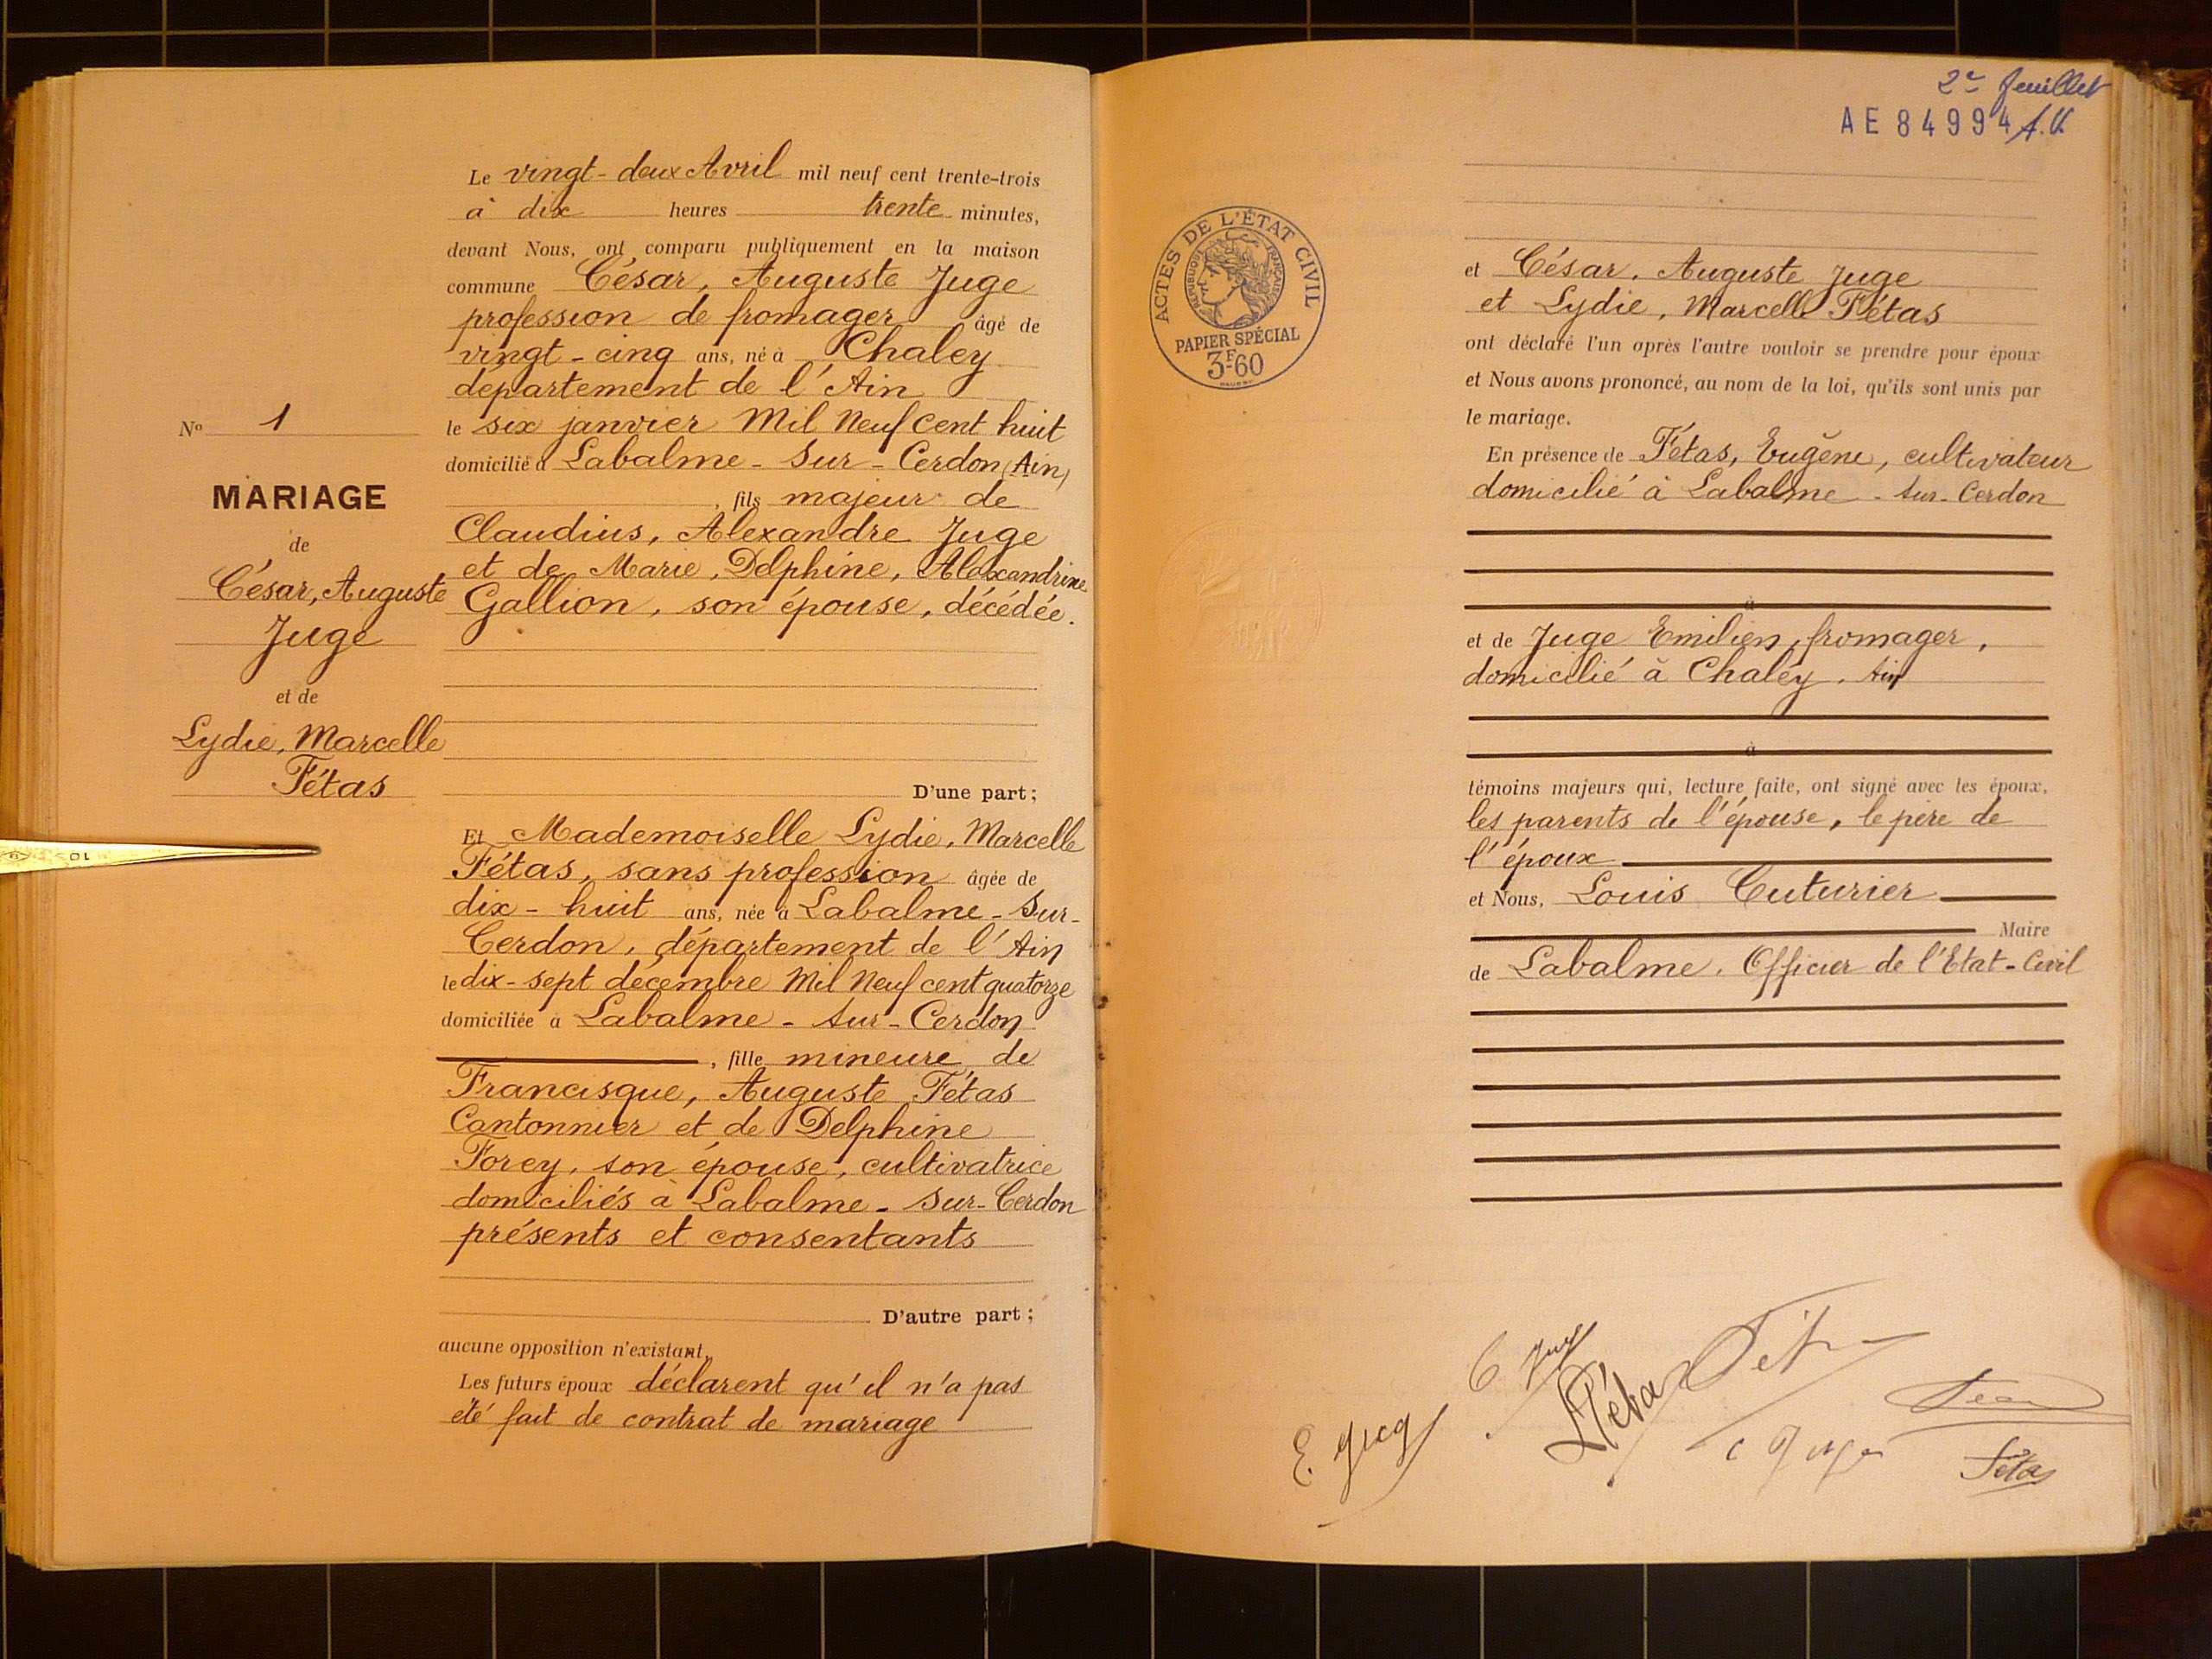 Le vingt-deux Avril mil neuf cent trente-trois
à dix heures trente minutes,
devant Nous, ont comparu publiquement en la maison
commune César, Auguste Juge
profession de fromager âgé de
vingt-cinq ans, né à Chaley
département de l'Ain
le six janvier Mil Neuf cent huit
domicilié à Labalme-Sur-Cerdon (Ain)
, fils majeur de
Claudius, Alexandre Juge
et de Marie, Delphine, Alexandrine
Gallion, son épouse, décédée.
No 1
MARIAGE
de
César, Auguste
Juge
et de
Lydie, Marcelle
Fétas
D'une part;
Et Mademoiselle Lydie, Marcelle
Fétas, sans profession âgée de
dix-huit ans, née à Labalme-Sur-
Cerdon, département de l'Ain
le dix-sept décembre Mil Neuf cent quatorze
domiciliée à Labalme-Sur-Cerdon
, fille mineure de
Francisque, Auguste Fétas
Cantonnier et de Delphine
Forey, son épouse, cultivatrice
domiciliés à Labalme-Sur-Cerdon
présents et consentants
D'autre part;
aucune opposition n'existant,
Les futurs époux déclarent qu'il n'a pas
été fait de contrat de mariage
10
2e feuillet
AE 84994
ACTES DE L'ÉTAT CIVIL
RÉPUBLIQUE FRANÇAISE
PAPIER SPÉCIAL
3F.60
et César, Auguste Juge
et Lydie, Marcelle Fétas
ont déclaré l'un après l'autre vouloir se prendre pour époux
et Nous avons prononcé, au nom de la loi, qu'ils sont unis par
le mariage.
En présence de Fétas, Eugène, cultivateur
domicilié à Labalme-Sur-Cerdon
à
et de Juge Emilien, fromager,
domicilié à Chaley, Ain
à
témoins majeurs qui, lecture faite, ont signé avec les époux,
les parents de l'épouse, le père de
l'époux
et Nous, Louis Cuturier
Maire
de Labalme, Officier de l'Etat-Civil
C Juge
L Fétas
E. Juge
C Juge
Fétas